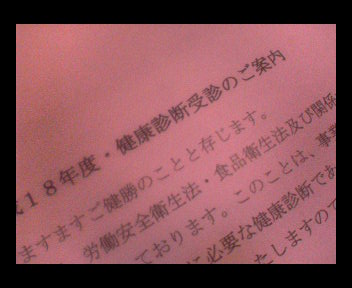 18年度・健康診断受診のご案内
ますますご健勝のことと存じます。
労働安全衛生法・食品衛生法及び関係
ております。このことは、事業
に必要な健康診断であ
たしますので